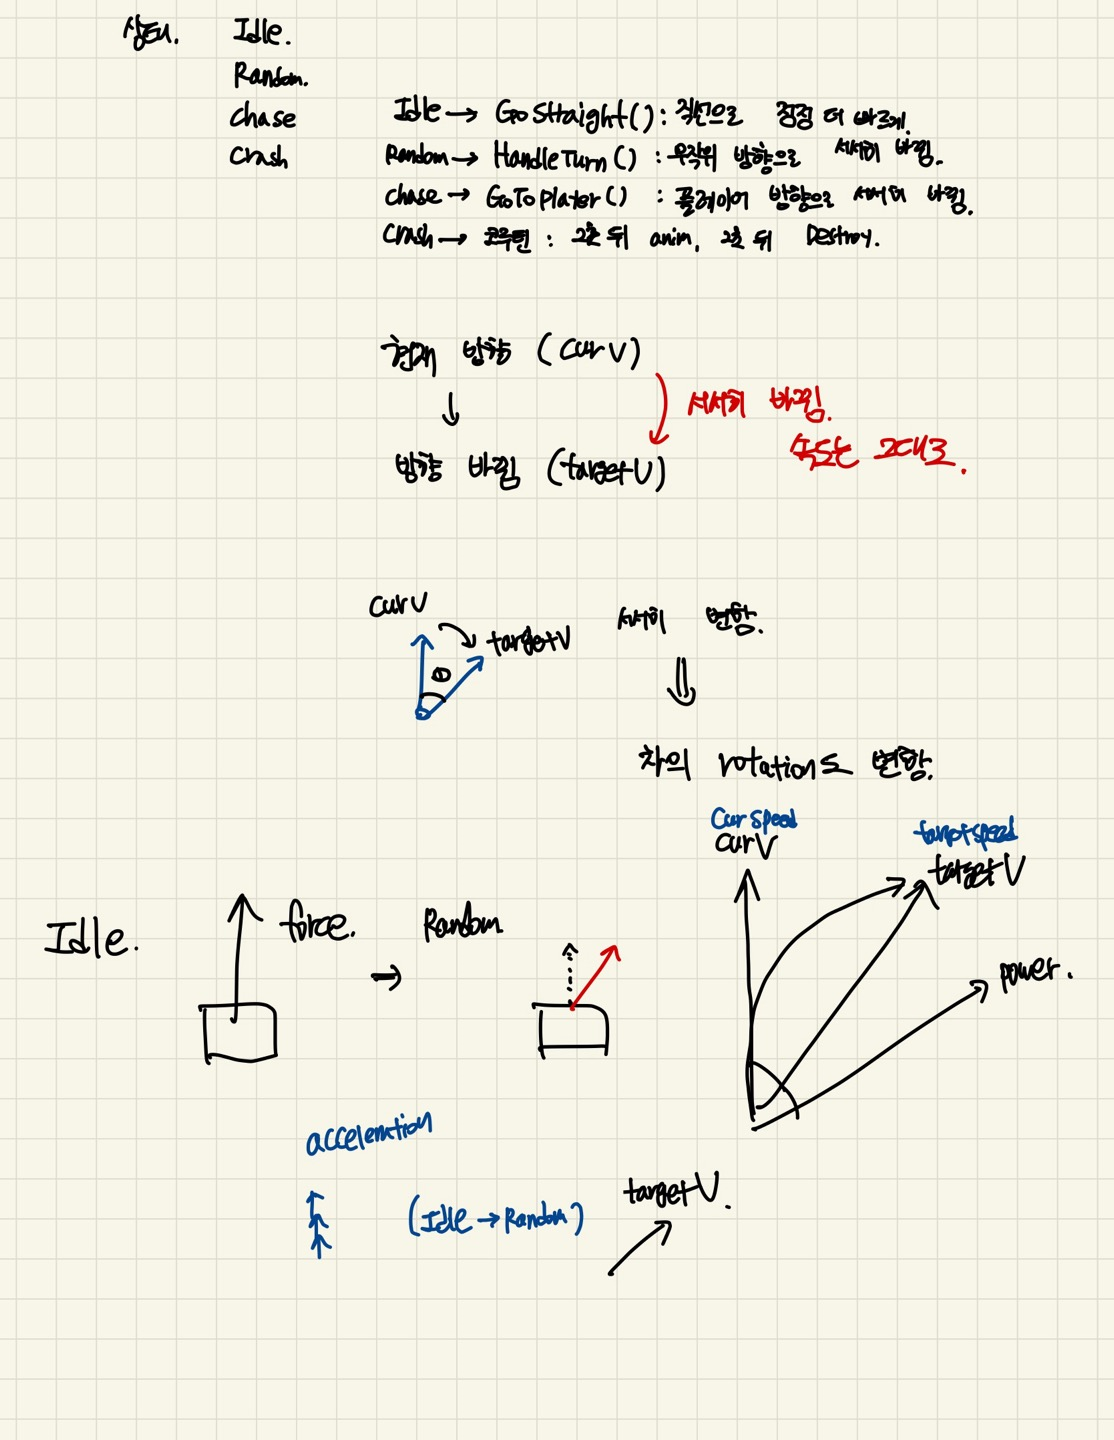 상태. Idle.
Random.
Chase
Crash
Idle → GoStraight() : 직선으로 점점 더 빠르게.
Random → HandleTurn() : 무작위 방향으로 서서히 바뀜.
Chase → GoToPlater() : 플레이어 방향으로 서서히 바뀜.
Crash → 코루틴 : 2초 뒤 anim, 2초 뒤 Destroy.
현재 방향 (curV)
↓
서서히 바뀜.
속도는 그대로.
방향 바뀜 (targetV)
curV
targetV
θ
서서히 변함.
⇓
차의 rotation도 변함.
Cur speed
curV
target speed
targetV
power.
Idle.
force.
→
Random
acceleration
(Idle → Random)
targetV.